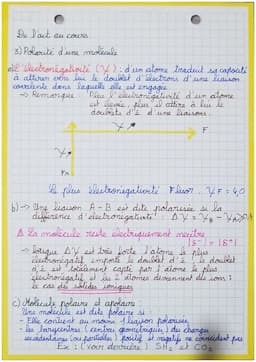 De l'act au cours
3) Polarité d'une molécule
a) L'électronégativité (χ) : d'un atome traduit sa capacité
à attirer vers lui le doublet d'électrons d'une liaison
covalente dans laquelle elle est engagée
→ Remarque : Plus l'électronégativité d'un atome
est élevée, plus il attire à lui le
doublets d'é d'une liaisons.
χ
F
χ
Fr
le plus électronégativité Fluor. χF = 4,0
b) → Une liaison A - B est dite polarisée si la
différence d'électronégativité : Δχ = χB - χA
⚠ La molécule reste électriquement neutre
|δ-| = |δ+|
→ Lorsque Δχ est très forte l'atome le plus
électronégatif importe le doublet d'é : le doublet
d'é est totalement capté par l'atome le plus
électronégatif et les 2 atomes deviennent des ions :
le cas des solides ioniques
c) Molécule polaire et apolaire
Une molécule est dite polaire si :
- Elle contient au moins 1 liaison polarisée
- les barycentres (centres géométriques) des charges
excédentaires (ou partielles) positif et négatifs ne coïncident pas
Ex : (Voir derrière) SH2 et CO2